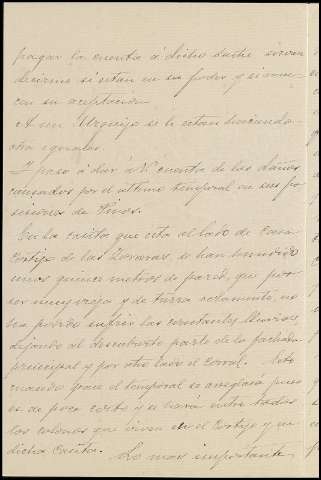 pagar la cuenta á dicho sastre sirvan
decirme si estan en su poder y si mere-
cen su aceptación
A un Urquijo se le estan haciendo
otra iguales.
Y paso á dar á V. cuenta de los daños
causados por el ultimo temporal en sus po-
sesiones de Pinos.
En la casita que esta al lado de Casa
Cortijo de las Zorreras, se han hundido
unos quince metros de pared, que por
ser muy vieja y de tierra solamente, no
ha podido sufrir las constantes lluvias,
dejando al descubierto parte de la fachada
principal y por otro lado el corral. Esto
cuando pase el temporal se arreglará pues
es de poco costo y se hará entre todos
los colonos que viven en el Cortijo y en
dicha Casita. Lo mas importante